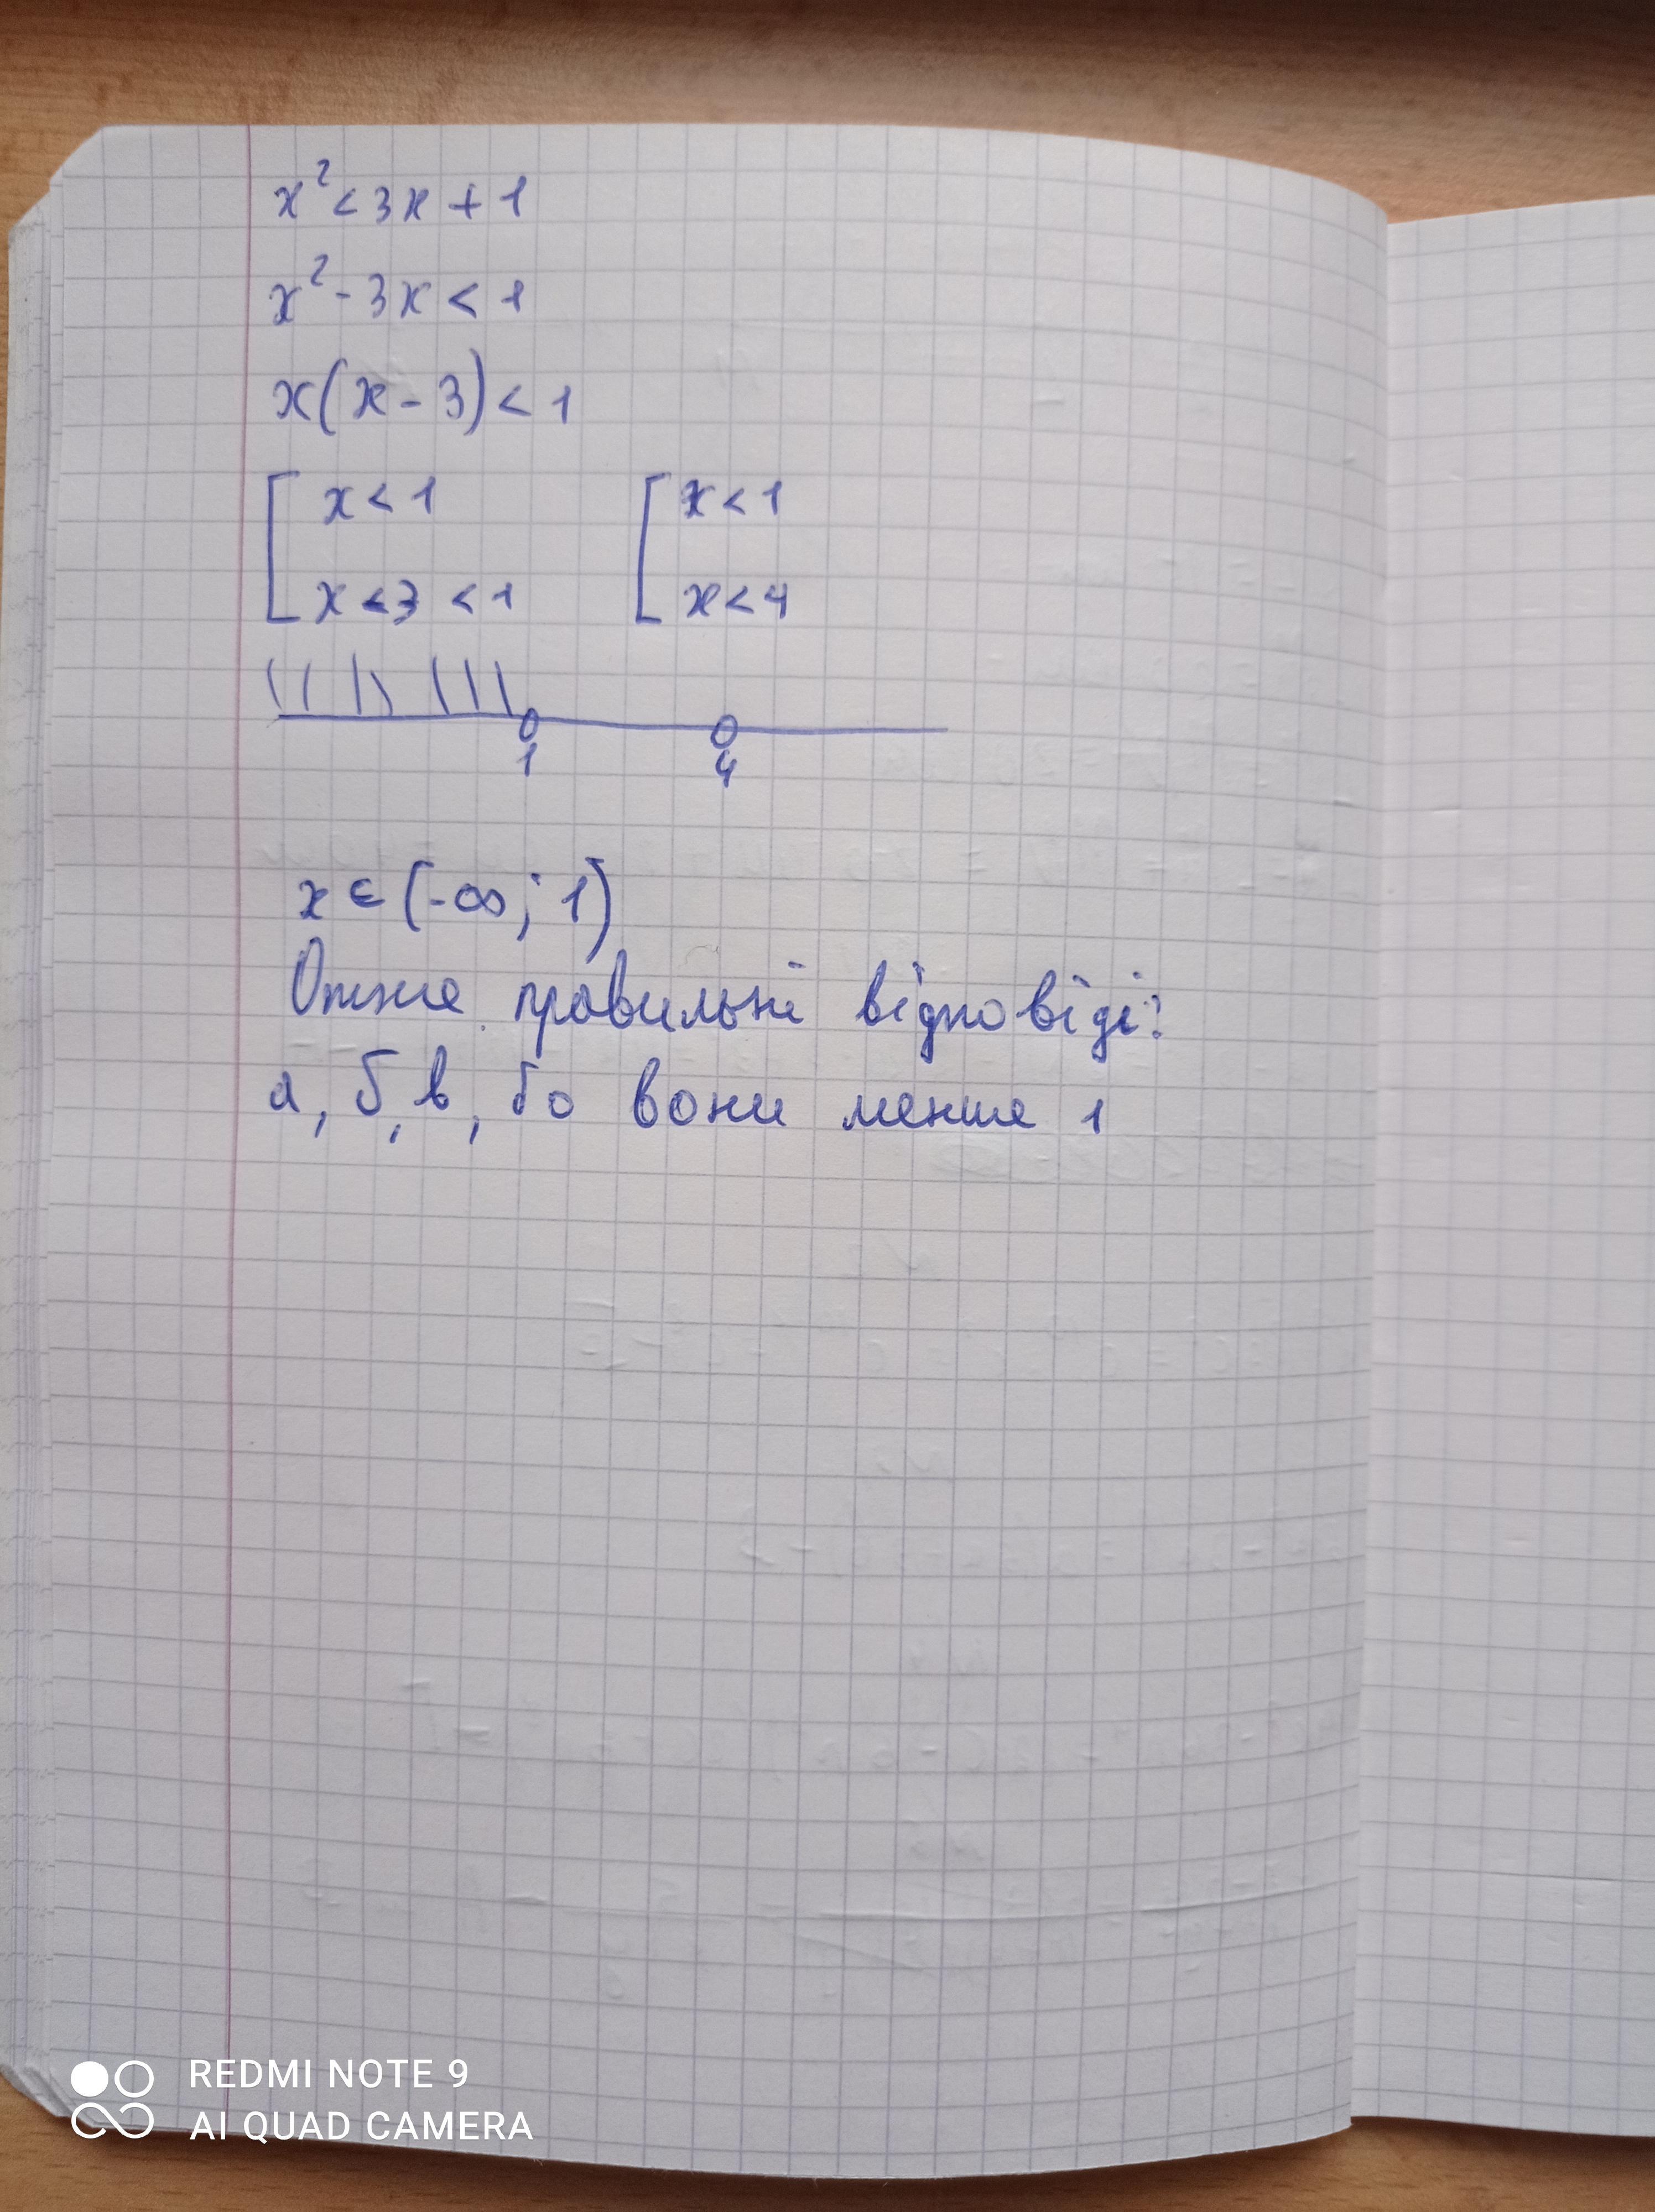 x² < 3x + 1
x² - 3x < 1
x(x - 3) < 1
[ x < 1 [ x < 1
x < 3 < 1 x < 4
1 4
x ∈ (-∞; 1)
Отже правильні відповіді:
а, б, в, бо вони менше 1
REDMI NOTE 9
AI QUAD CAMERA